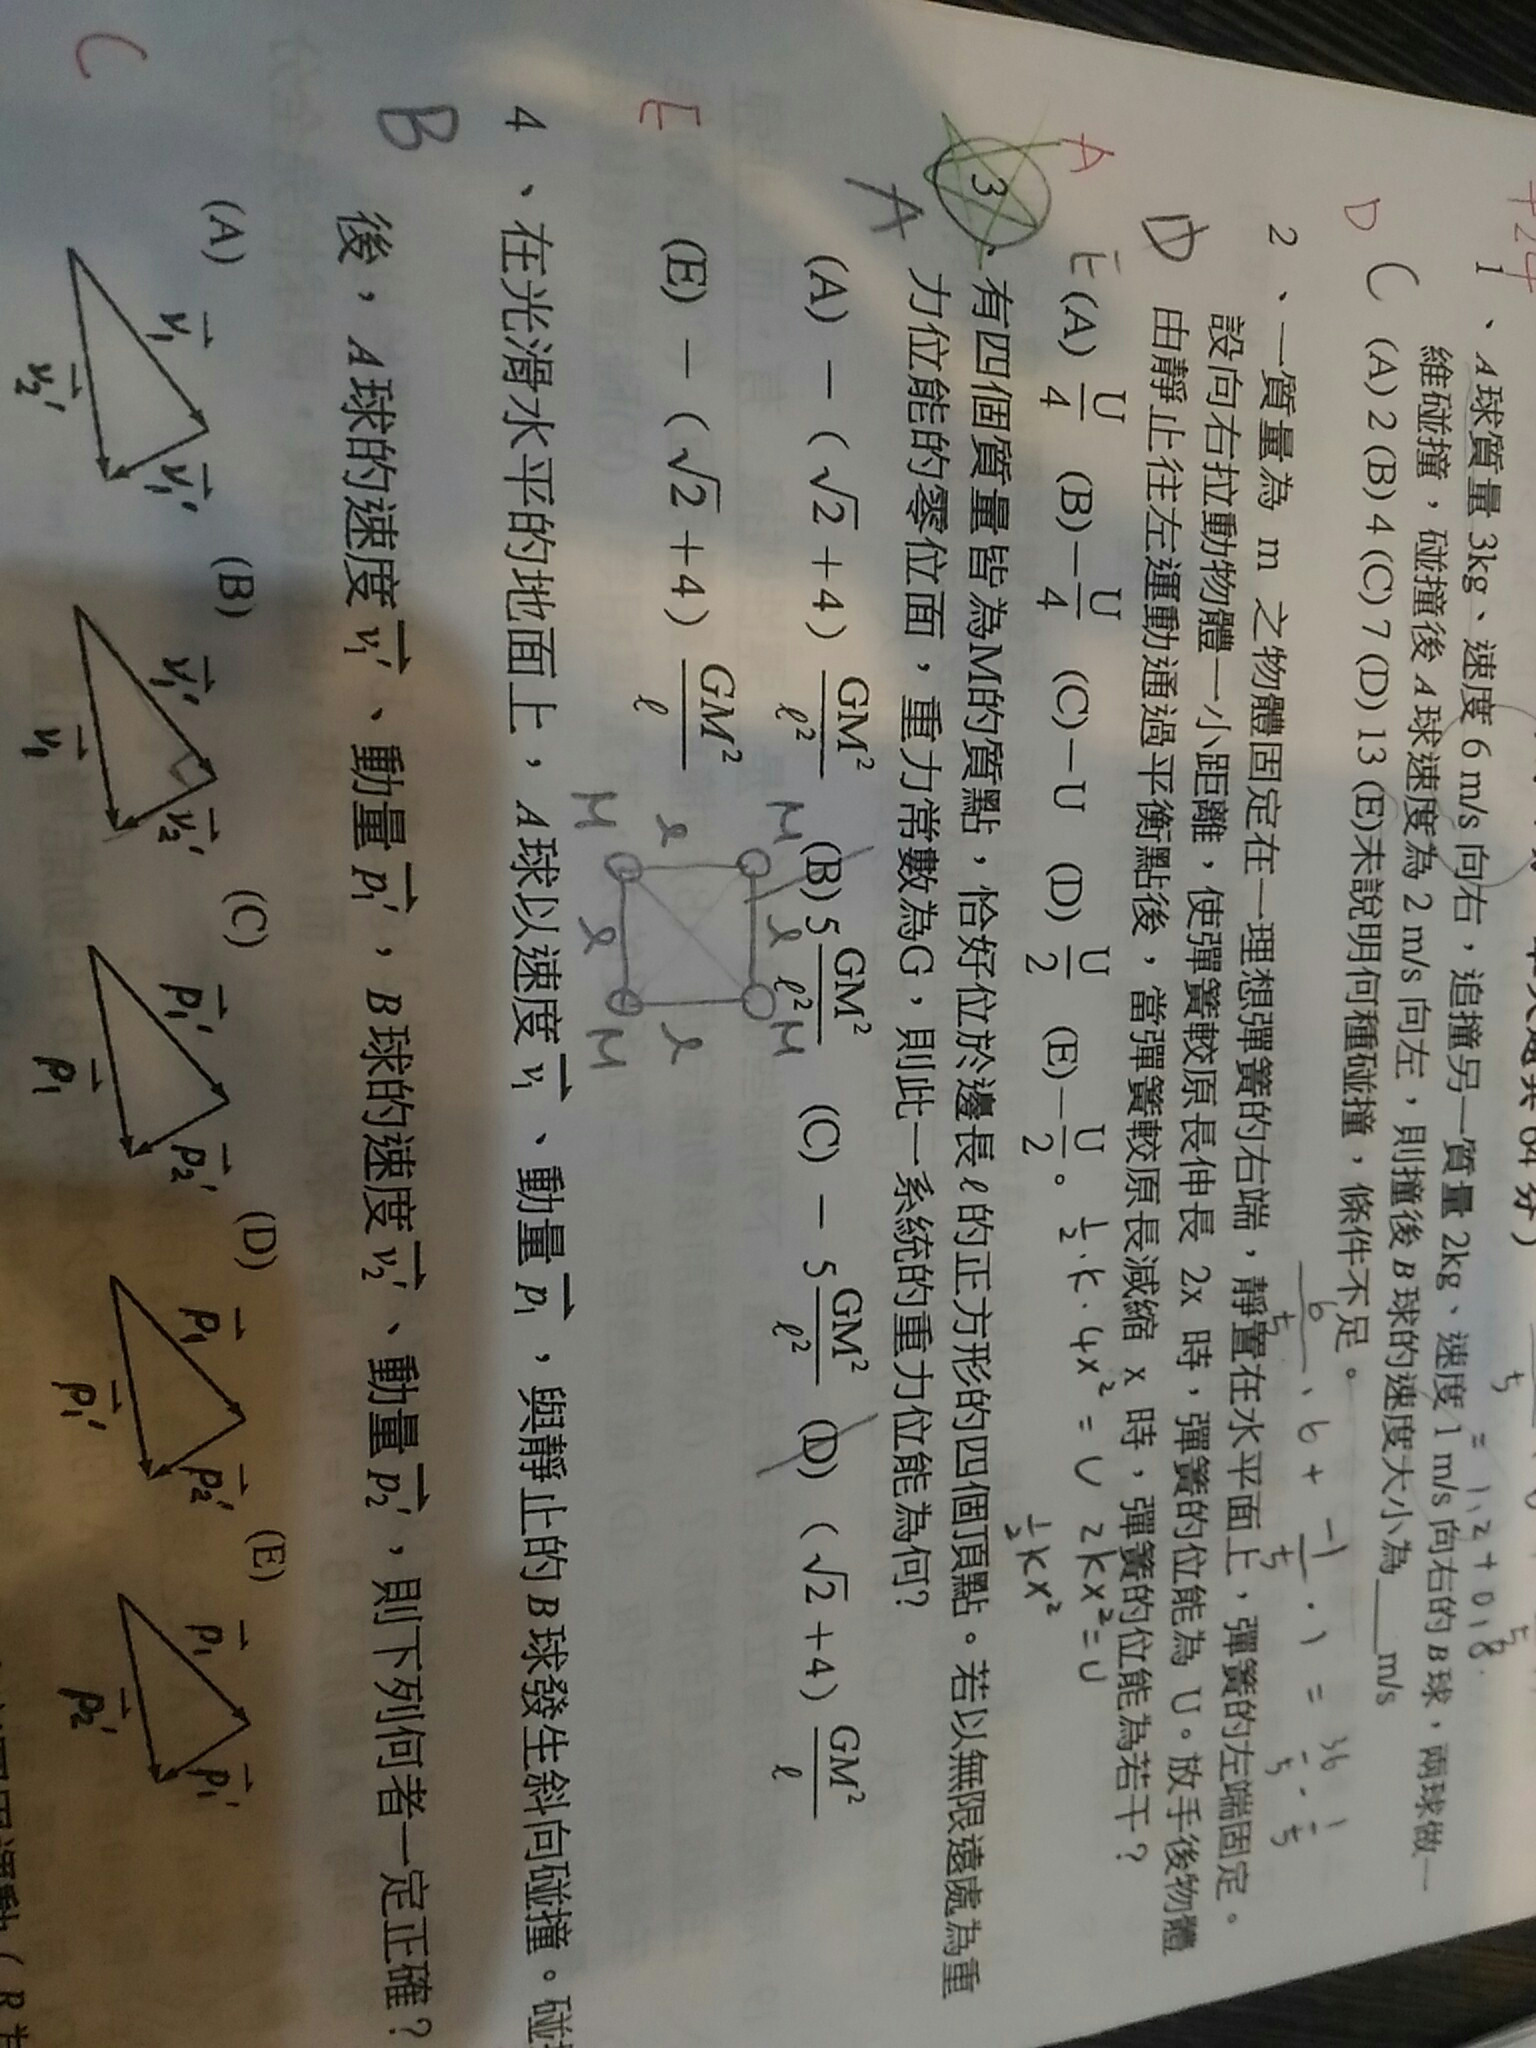 +24
1、A球質量 3kg、速度 6 m/s 向右，追撞另一質量 2kg、速度 1 m/s 向右的 B球，兩球做一
維碰撞，碰撞後 A 球速度為 2 m/s 向左，則撞後 B 球的速度大小為____m/s
D C (A) 2 (B) 4 (C) 7 (D) 13 (E)未說明何種碰撞，條件不足。
2、一質量為 m 之物體固定在一理想彈簧的右端，靜置在水平面上，彈簧的左端固定。
設向右拉動物體一小距離，使彈簧較原長伸長 2x 時，彈簧的位能為 U。放手後物體
D 由靜止往左運動通過平衡點後，當彈簧較原長減縮 x 時，彈簧的位能為若干？
A E (A) U/4 (B) −U/4 (C) −U (D) U/2 (E) −U/2。
½·k·4x² = U 2kx² = U
½kx²
3、有四個質量皆為M的質點，恰好位於邊長 ℓ 的正方形的四個頂點。若以無限遠處為重
A 力位能的零位面，重力常數為G，則此一系統的重力位能為何？
(A) −(√2+4) GM²/ℓ² (B) 5 GM²/ℓ² (C) −5 GM²/ℓ² (D) (√2+4) GM²/ℓ
E (E) −(√2+4) GM²/ℓ
M ℓ M
ℓ ℓ
M ℓ M
4、在光滑水平的地面上，A球以速度 v₁、動量 p₁，與靜止的 B球發生斜向碰撞。碰
B 後，A球的速度 v₁′、動量 p₁′，B球的速度 v₂′、動量 p₂′，則下列何者一定正確？
C
(A) (B) (C) (D) (E)
v₁ v₁′ v₂′
v₁′ v₂′ v₁
p₁′ p₂′ p₁
p₁ p₂′ p₁′
p₁ p₁′ p₂′